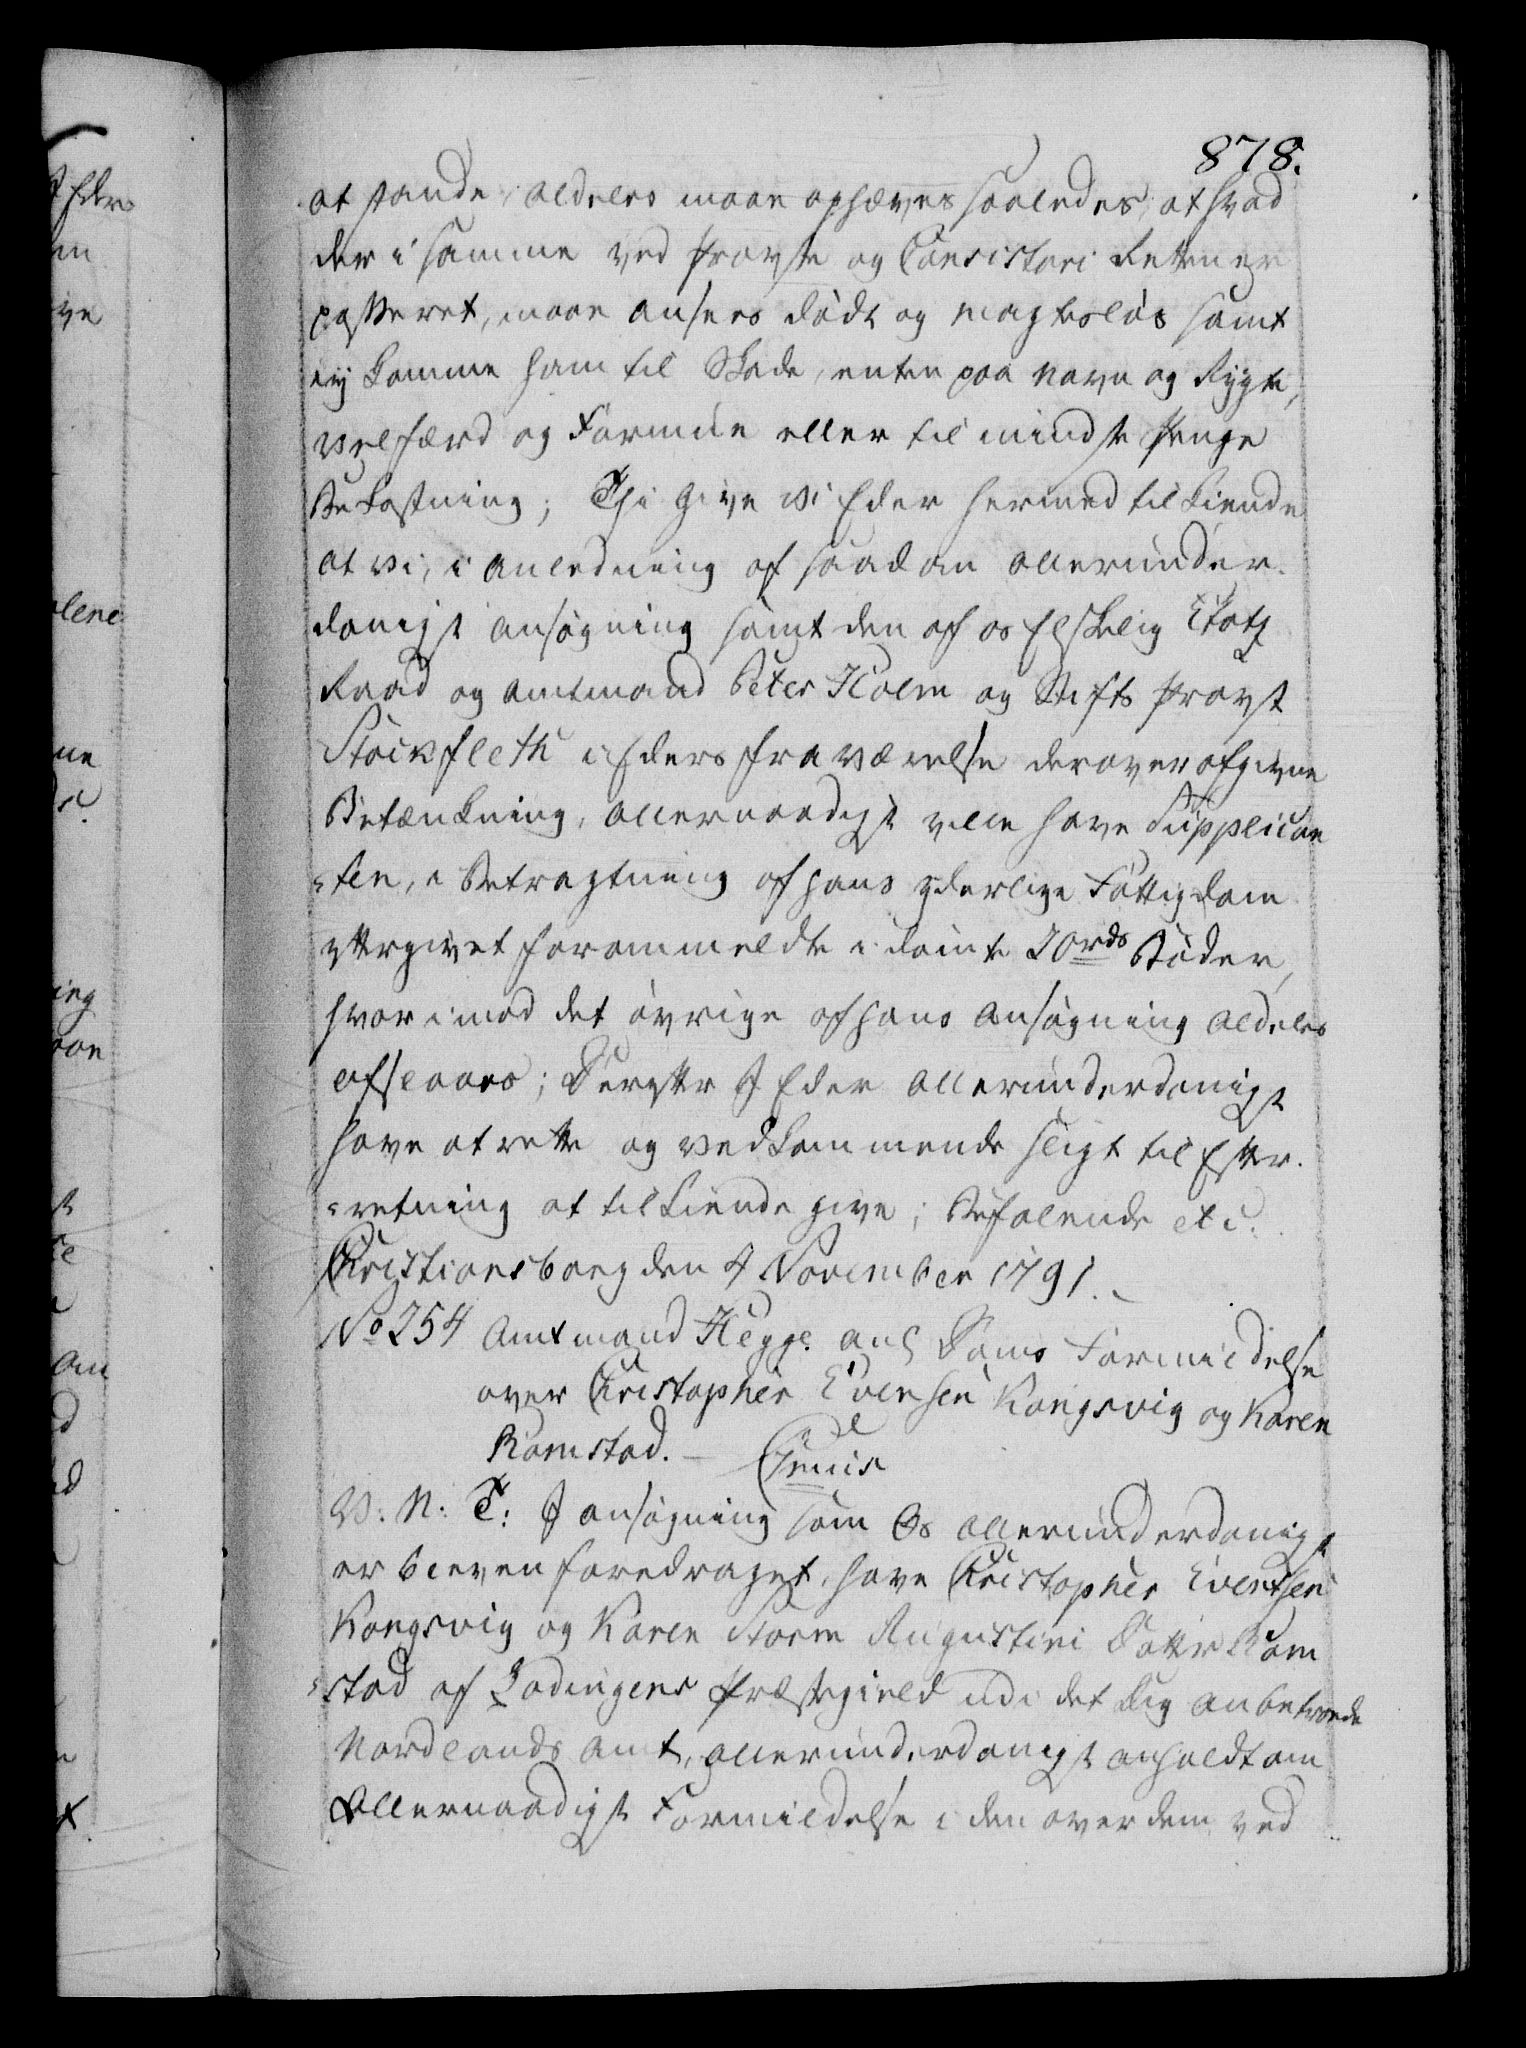 878.
at stande, aldeles maae ophæves saaledes, at hvad
der i samme ved Provste og Consistori Retten er
passeret, maae ansees dødt og magtesløs samt
ej komme ham til Skade, enten paa Navn og Rygte,
velfærd og Formue eller til mindste Penge
Bekostning; Thi give vi Eder hermed tilkiende
at vi, i anledning af saadan allerunder-
danigst ansøgning samt den af os Elskelig Etatz
Raad og Amtmand Peter Holm og Stifts Provst
Stockfleth i Eders fraværelse derover afgivne
Betænkning, allernaadigst ville have Supplican
-ten, i Betragtning af hans yderlige Fattigdom
eftergivet forommeldte idømte 20 rds Bøder,
hvorimod det øvrige af hans Ansøgning aldeles
afslaaes; Derefter I Eder allerunderdanigst
have at rette og vedkommende sligt til Efter-
-retning at tilkiende give; Befalende etc.
Christiansborg den 4 November 1791.
No 254 Amtmand Hegge. anl Doms Formildelse
over Christopher Evensen Kongsvig og Karen
Ramstad. — Gratis
V: N: T: I ansøgning som Os allerunderdanigst
er bleven foredraget, have Christopher Evensen
Kongsvig og Karen Storm Augustini Datter Ram
-stad af Lodingens Præstegield udi det Dig anbetroede
Nordlands Amt, allerunderdanigst anholdt om
Allernaadigst Formildelse i den over dem ved